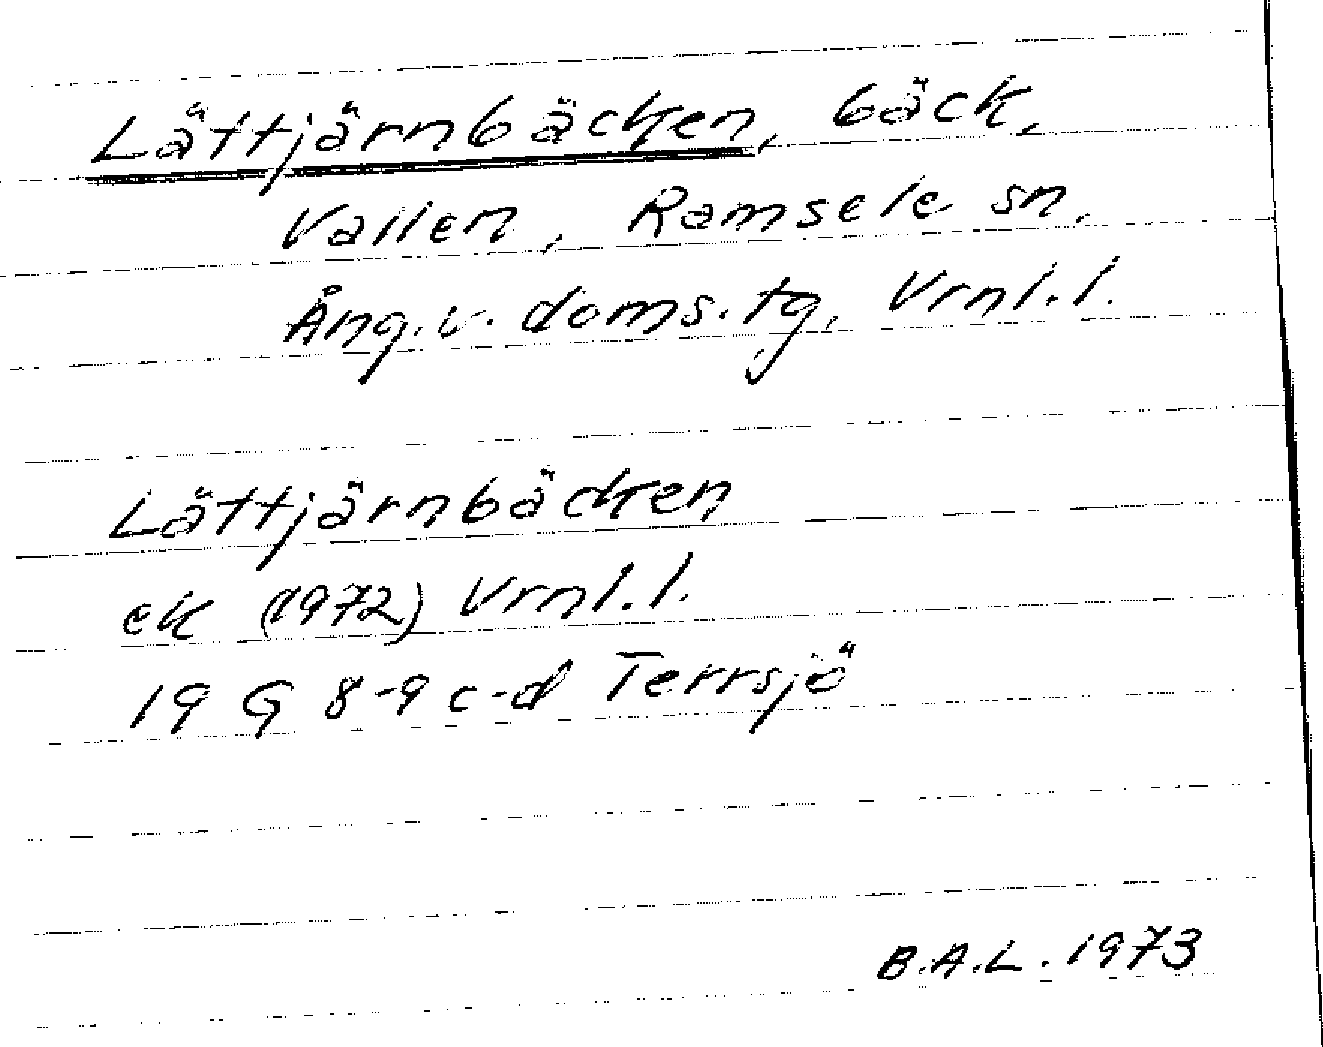 Lättjärnbäcken, bäck,
Vallen, Ramsele sn,
Ång.v. doms.tg, Vrnl.l.
Lättjärnbäcken
ek (1972) Vrnl.l.
19 G 8-9 c-d Terrsjö
B.A.L. 1973